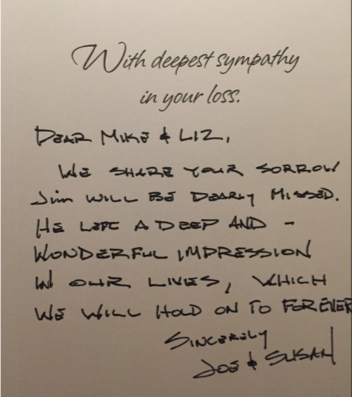 With deepest sympathy
in your loss.
DEAR MIKE & LIZ,
WE SHARE YOUR SORROW
Jim WILL BE DEARLY MISSED.
HE LEFT A DEEP AND -
WONDERFUL IMPRESSION
IN OUR LIVES, WHICH
WE WILL HOLD ON TO FOREVER
SINCERELY
JOE & SUSAN